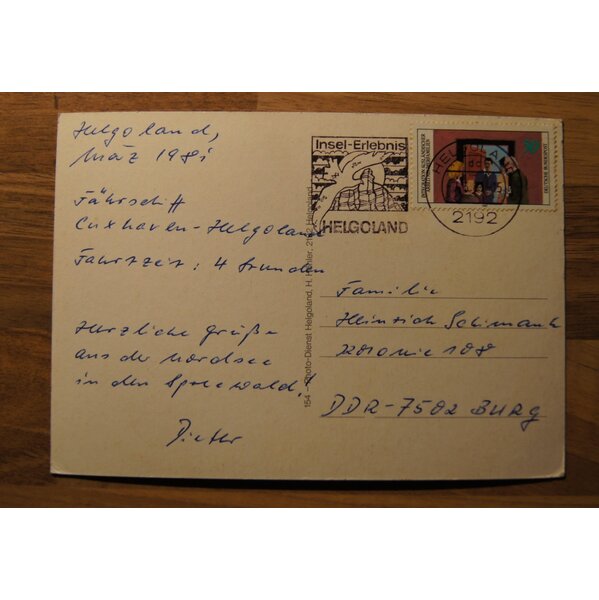 Helgoland,
März 1981
Fährschiff
Cuxhaven-Helgoland
Fahrtzeit: 4 Stunden
Herzliche Grüße
aus der Nordsee
in den Spreewald!
Dieter
Insel-Erlebnis
HELGOLAND
HELGOLAND
2192
INTEGRATION AUSLÄNDISCHER
ARBEITNEHMERFAMILIEN
DEUTSCHE BUNDESPOST
50
154 - Photo-Dienst Helgoland, H. Huster, 2192 Helgoland
Familie
Heinrich Schimank
Kolonie 108
DDR-7502 BURG